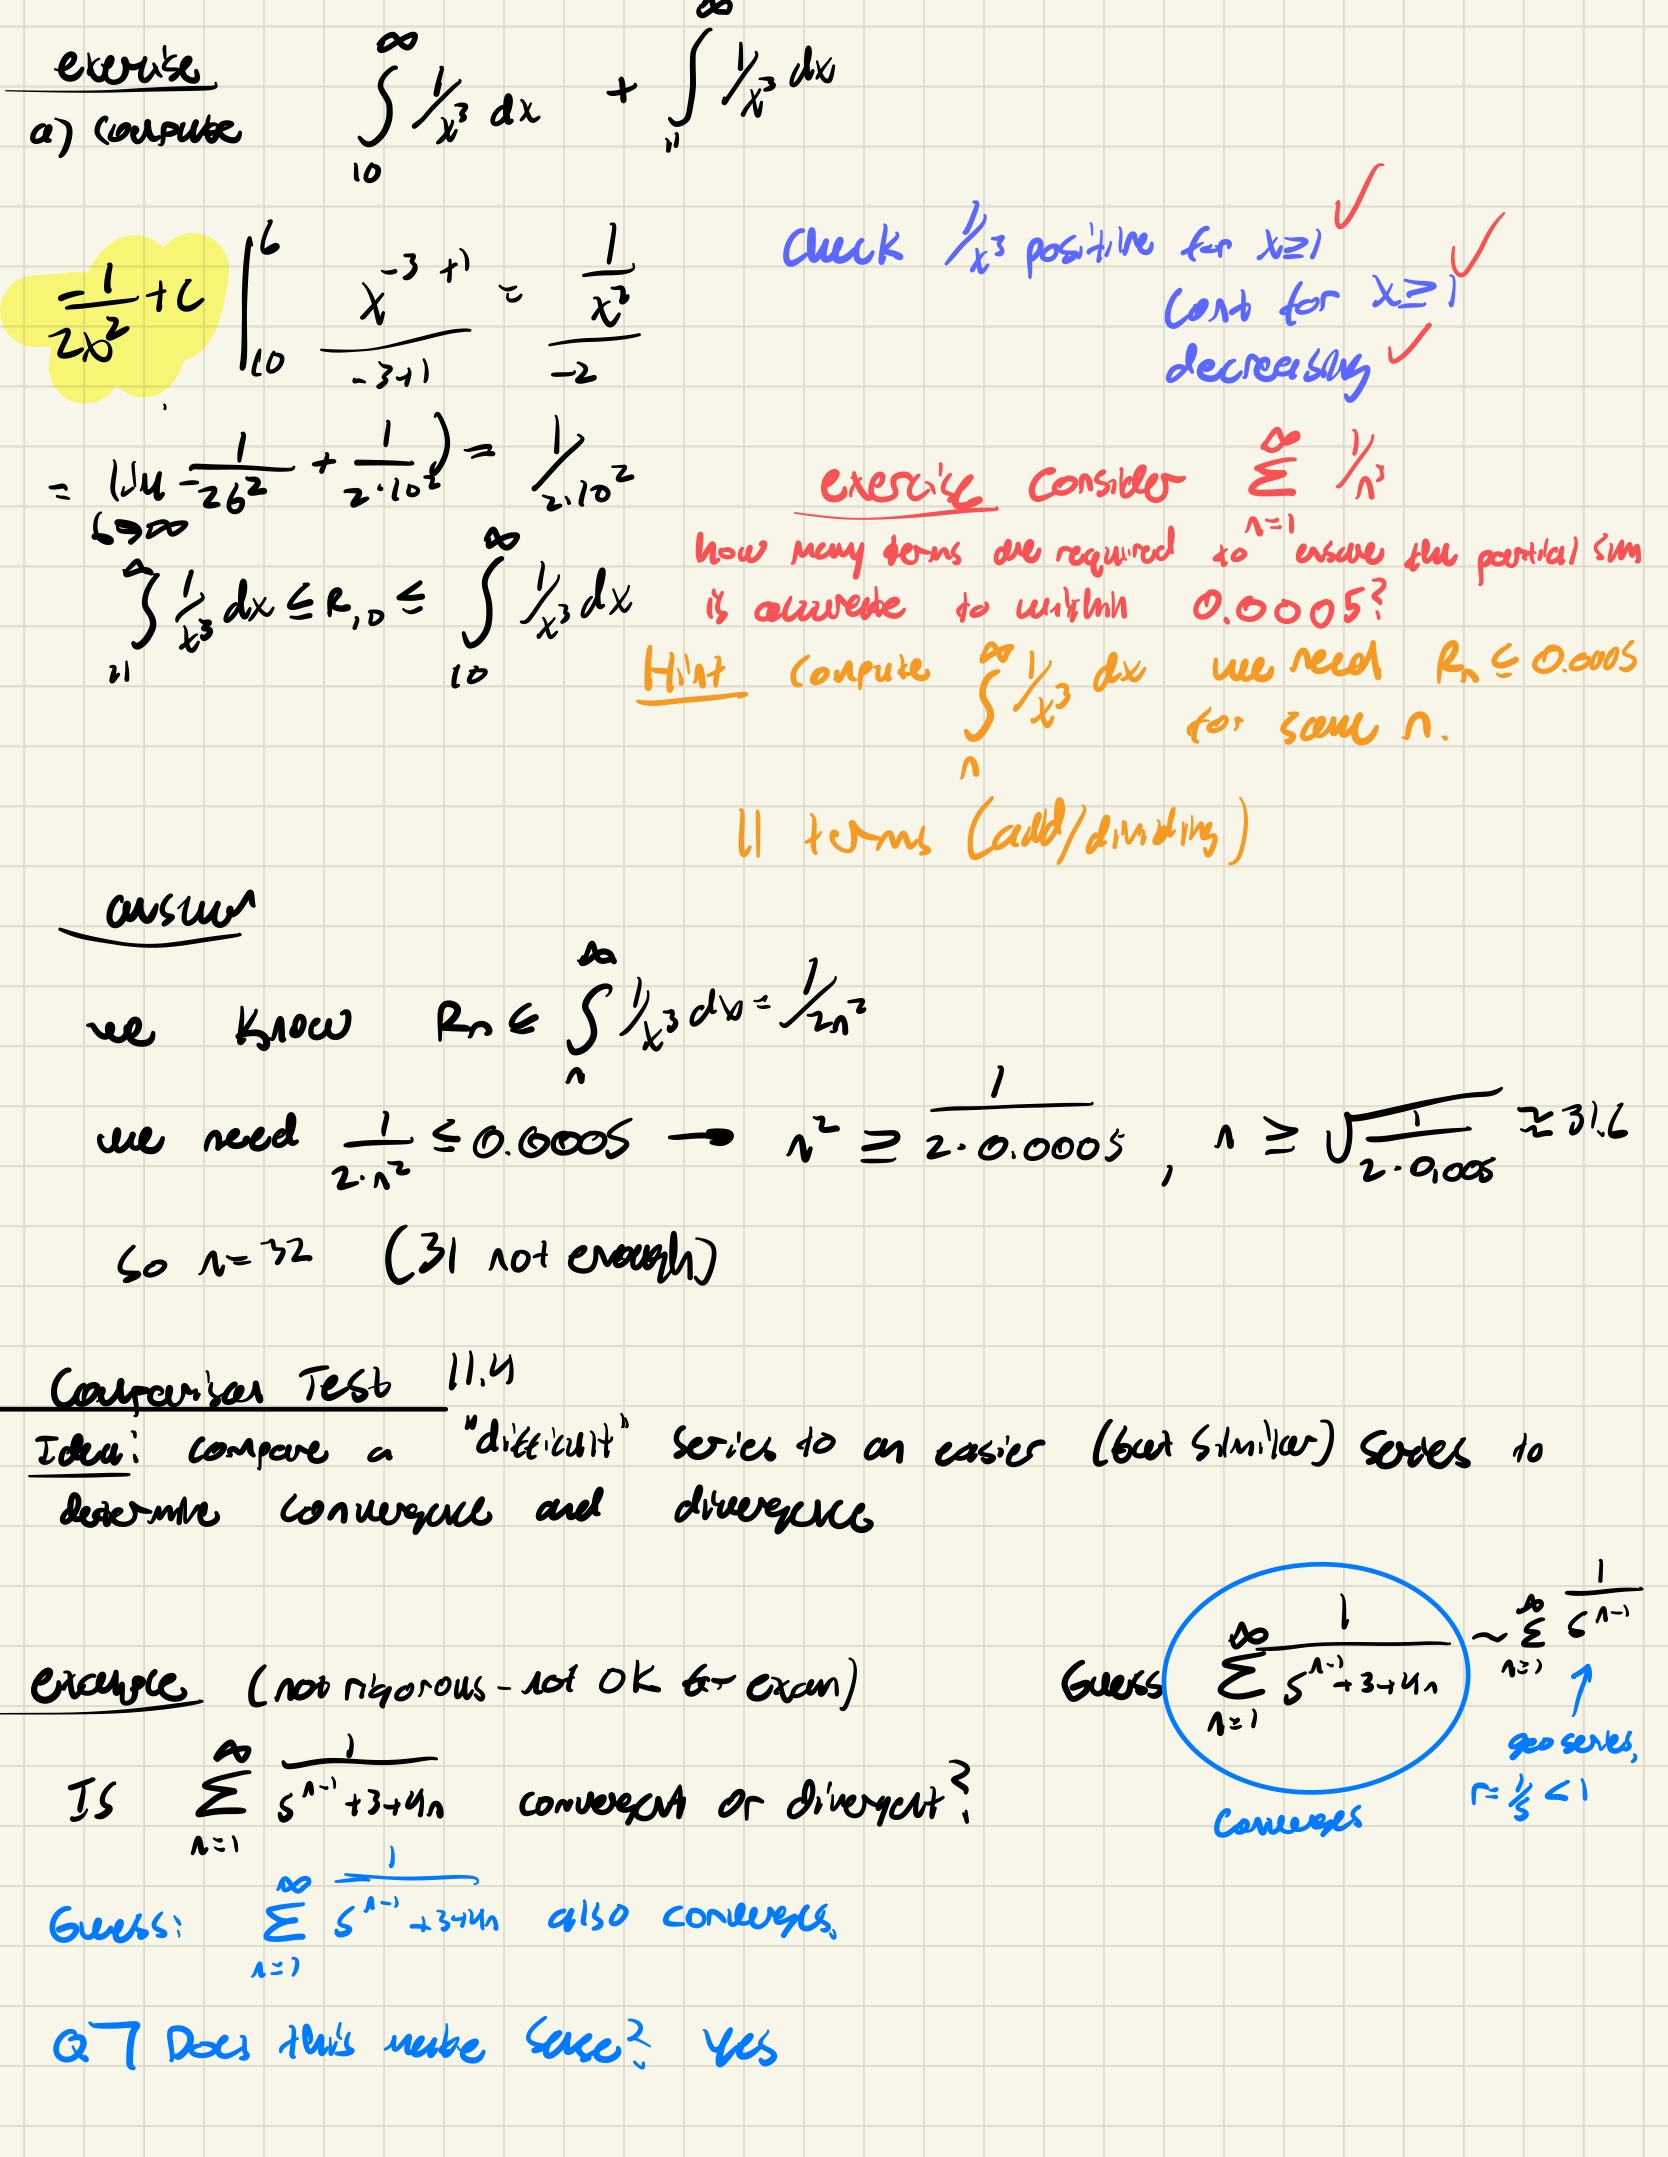 exercise
a) compute ∫_10^∞ 1/x³ dx + ∫_11^∞ 1/x³ dx
= 1/2b² + C |_10^b x^(-3+1)/(-3+1) = (1/x²)/(-2)
check 1/x³ positive for x≥1 ✓
cont for x≥1 ✓
decreasing ✓
= lim b→∞ -1/2b² + 1/2·10²) = 1/2·10²
∫_11^∞ 1/x³ dx ≤ R₁₀ ≤ ∫_10^∞ 1/x³ dx
exercise consider ∑_{n=1}^∞ 1/n³
how many terms are required to ensure the partial sum
is accurate to within 0.0005?
Hint compute ∫_n^∞ 1/x³ dx we need Rₙ ≤ 0.0005
for some n.
11 terms (add/dividing)
answer
we know Rₙ ≤ ∫_n^∞ 1/x³ dx = 1/2n²
we need 1/2·n² ≤ 0.0005 → n² ≥ 1/2·0.0005 , n ≥ √(1/2·0.005) ≈ 31.6
so n=32 (31 not enough)
Comparison Test 11.4
Idea: compare a "difficult" series to an easier (but similar) series to
determine convergence and divergence
example (not rigorous - not OK for exam)
Is ∑_{n=1}^∞ 1/(5^(n-1)+3+4n) convergent or divergent?
Guess ∑_{n=1}^∞ 1/(5^(n-1)+3+4n) ~ ∑_{n=1}^∞ 1/5^(n-1)
geo series,
r = 1/5 < 1
converges
Guess: ∑_{n=1}^∞ 1/(5^(n-1)+3+4n) also converges.
Q7 Does this make sense? Yes